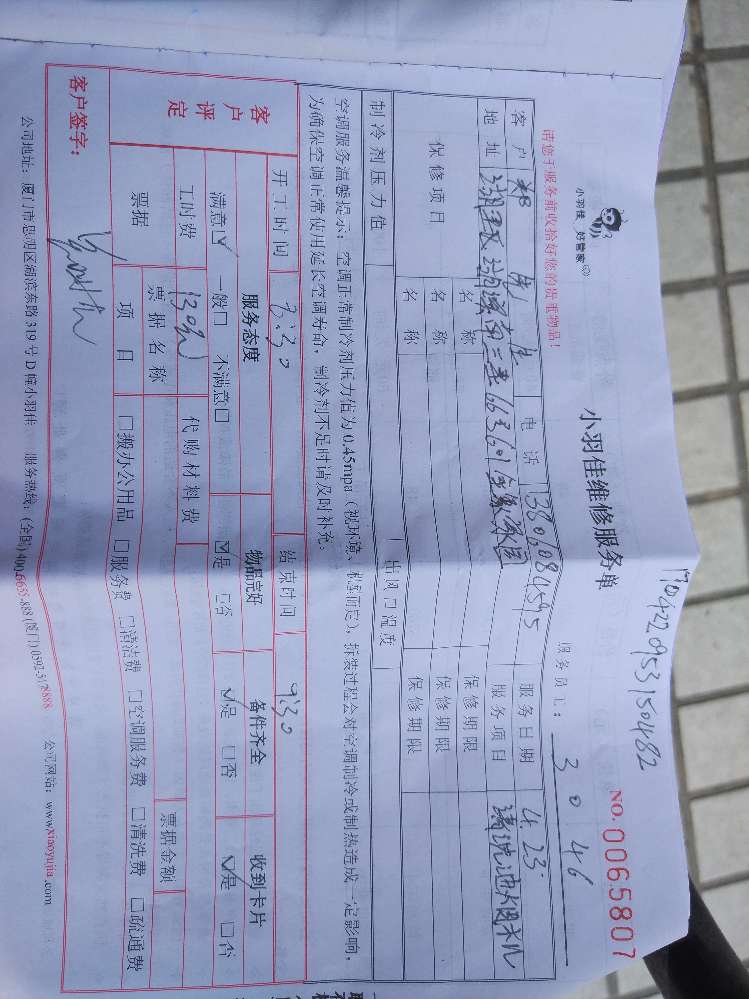 小羽佳 好管家
小羽佳维修服务单
1704220953150482
NO.0065807
请您于服务前收拾好您的贵重物品!
服务员工: 3046
客户 郑先生 电话 服务日期 4.23
地址 湖里区 南三 服务项目 清洗油烟机
保修项目 名称 保修期限
名称 保修期限
名称 保修期限
制冷剂压力值 出风口温度
空调服务温馨提示: 空调正常制冷剂压力值为0.45mpa(视环境、机型而定), 拆装过程会对空调制冷或制热造成一定影响,
为确保空调正常使用延长空调寿命, 制冷剂不足时请及时补充。
客户评定
开工时间 8:30 结束时间 9:30
服务态度 物品完好 备件齐全 收到卡片
满意☑ 一般□ 不满意□ ☑是 □否 ☑是 □否 ☑是 □否
工时费 130元 代购材料费
票据 票据名称 票据金额
项目 □搬办公用品 □服务费 □清洁费 □空调服务费 □清洗费 □疏通费
客户签字:
公司地址: 厦门市思明区湖滨东路319号D幢小羽佳 服务热线: (全国)400-6655-888 (厦门) 0592-5128888 公司网站: www.xiaoyujia.com